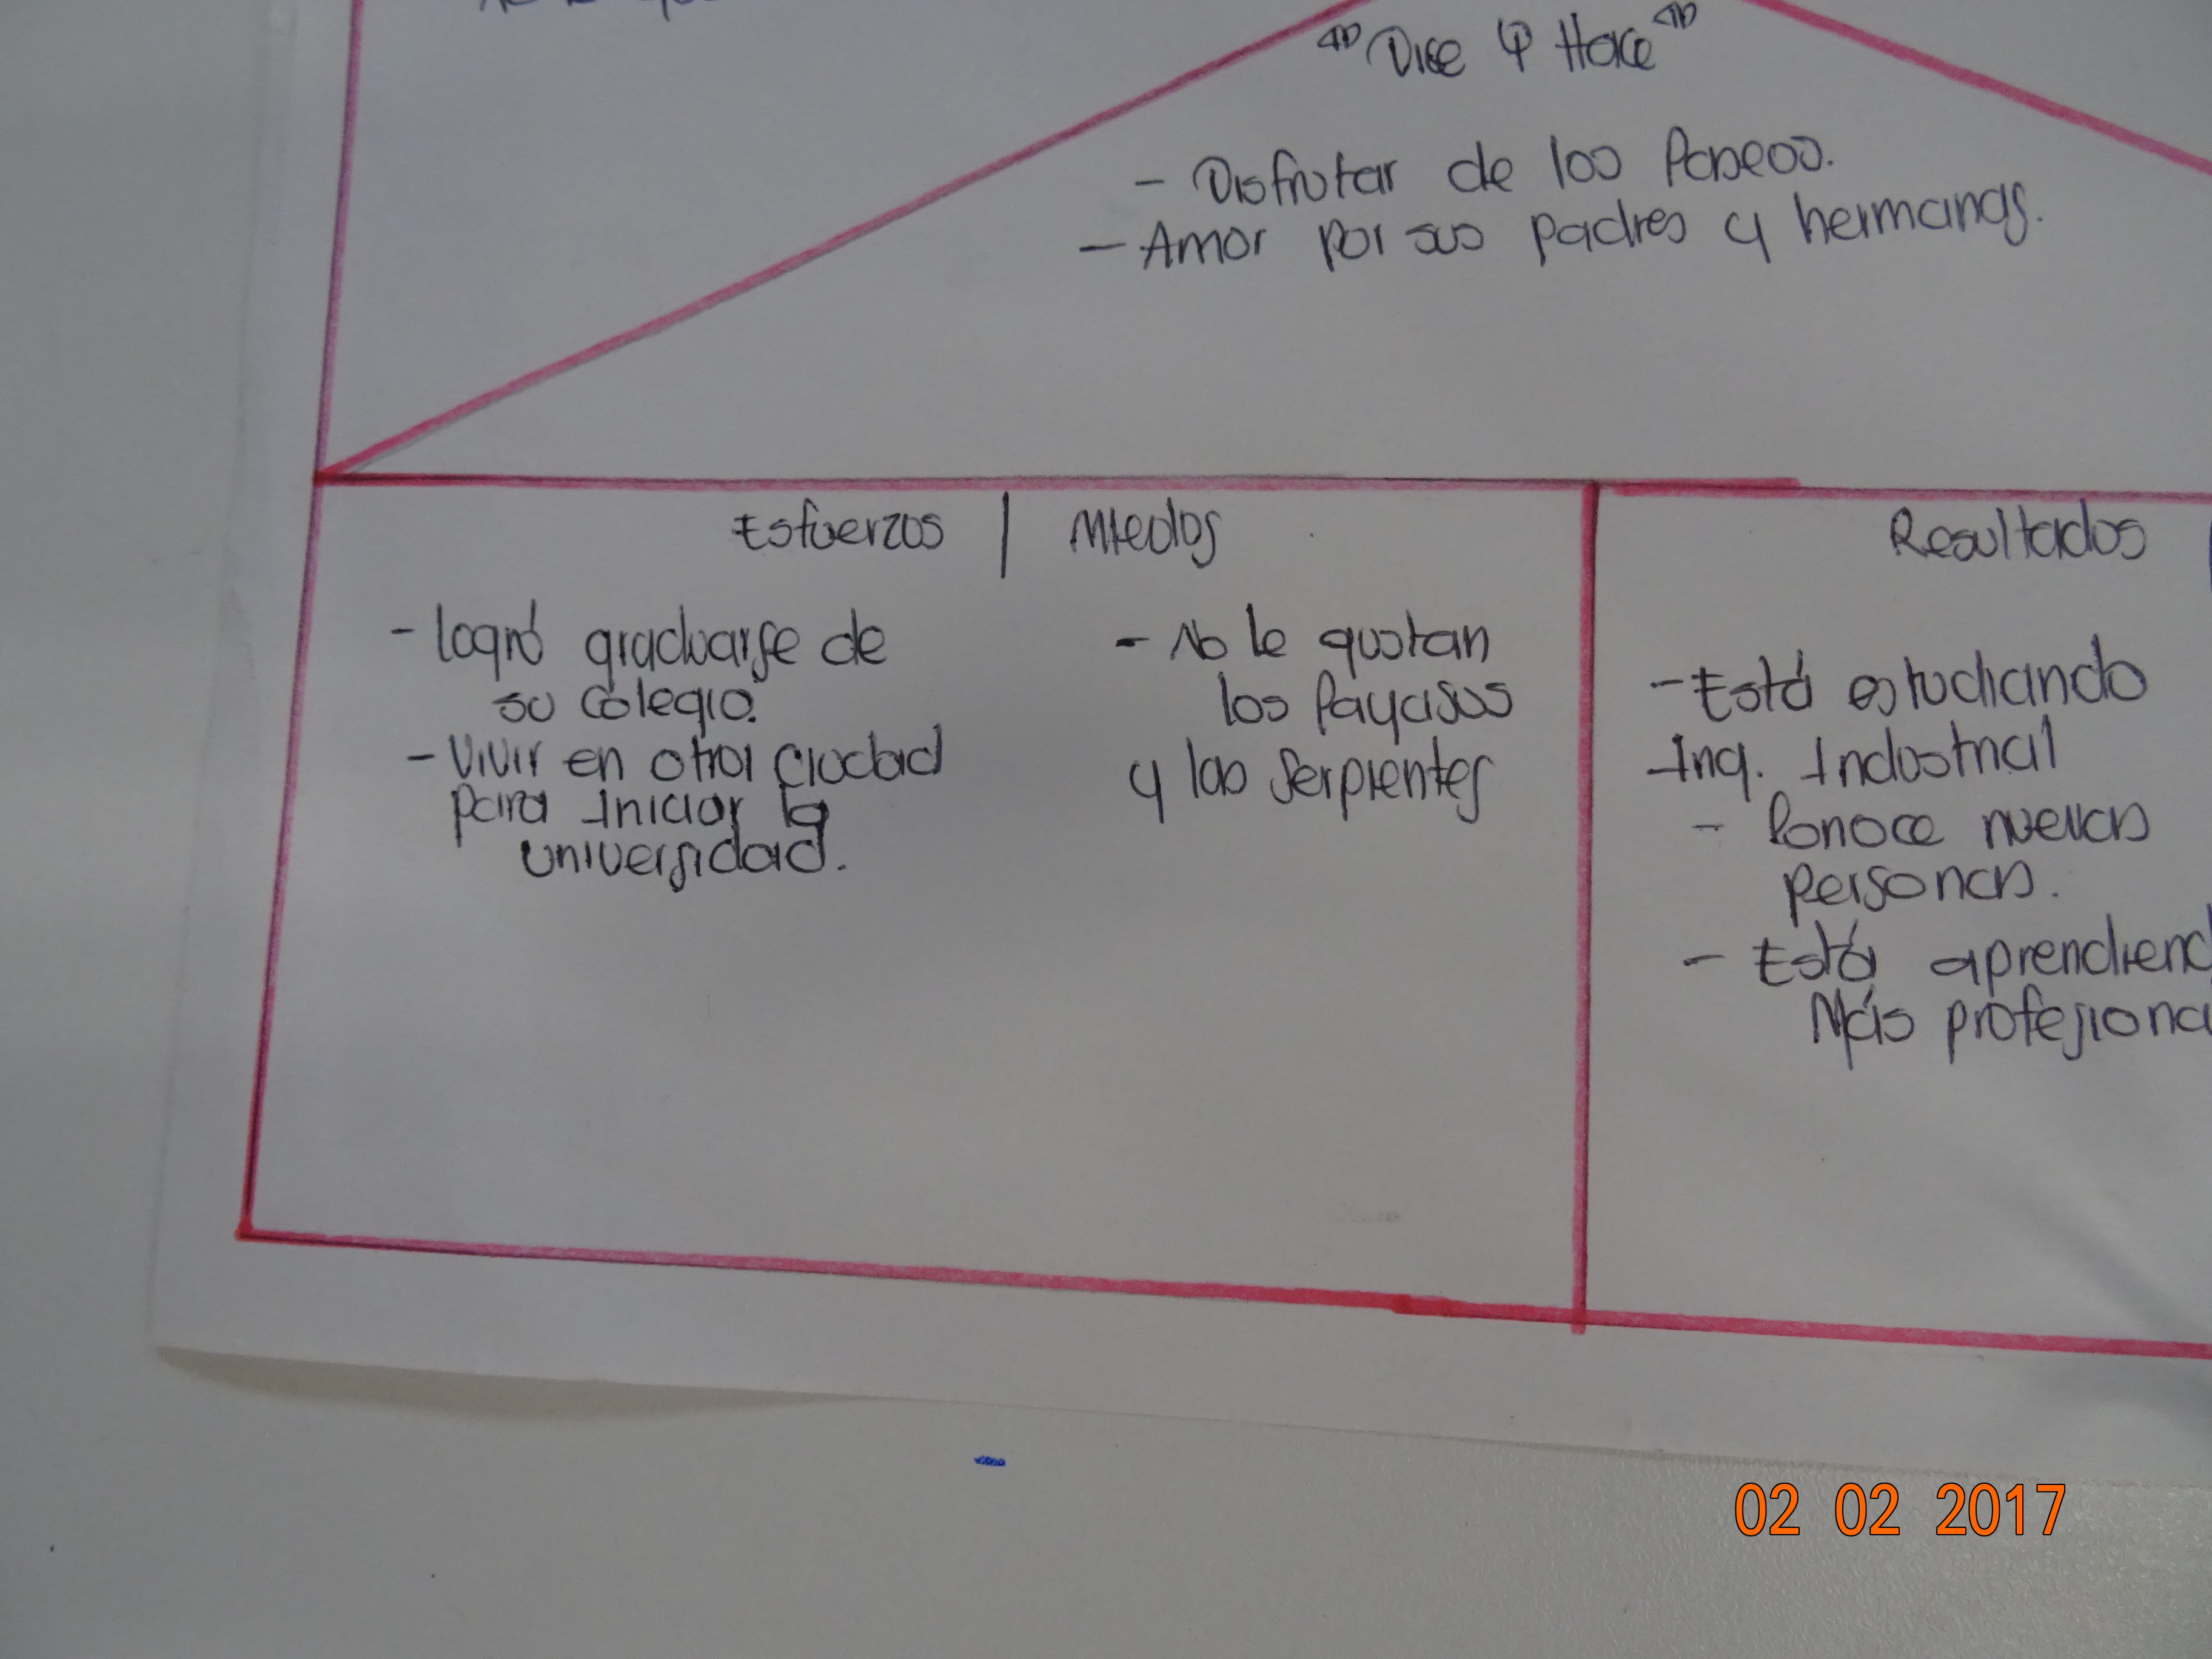 "Dice y Hace"
- Disfrutar de los Paseos.
- Amor por sus padres y hermanas.
Esfuerzos | Miedos
- Logró graduarse de
su colegio.
- Vivir en otra ciudad
para iniciar la
universidad.
- No le gustan
los Payasos
y las serpientes
Resultados
- Está estudiando
Ing. Industrial
- Conoce nuevas
personas.
- Está aprendiend
Más profesiona
02 02 2017